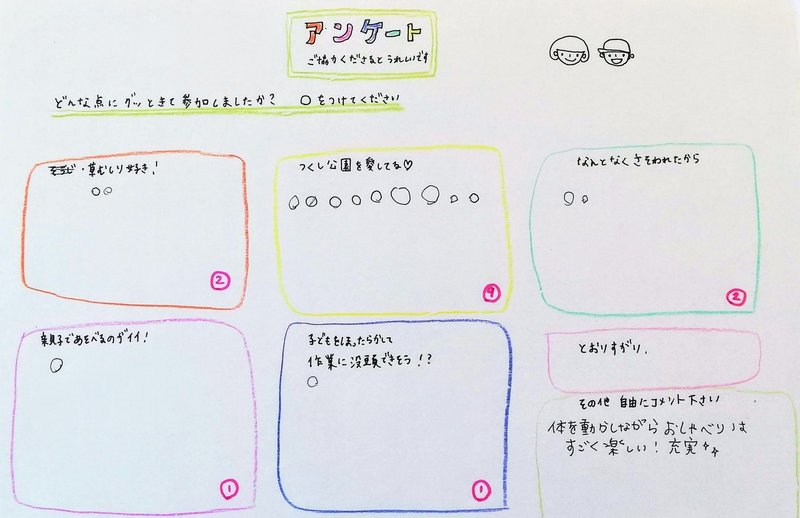 アンケート
ご協力くださるとうれしいです
どんな点にグッときて参加しましたか? ○をつけてください
・草むしり好き!
2
つくし公園を愛してる♡
9
なんとなくさそわれたから
2
親子であそべるのがイイ!
1
子どもをほったらかして
作業に没頭できそう!?
1
とおりすがり.
その他 自由にコメント下さい
体を動かしながらおしゃべりは
すごく楽しい! 充実